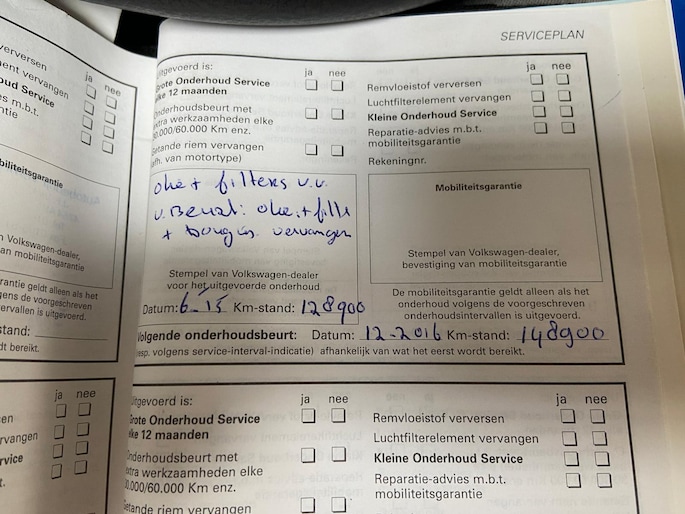 SERVICEPLAN
erversen
ent vervangen
oud Service
es m.b.t.
antie
ja nee
biliteitsgarantie
n Volkswagen-dealer,
an mobiliteitsgarantie
rantie geldt alleen als het
gens de voorgeschreven
ntervallen is uitgevoerd.
stand:
dt bereikt.
itgevoerd is:
ja nee
Grote Onderhoud Service
elke 12 maanden
Onderhoudsbeurt met
extra werkzaamheden elke
0.000/60.000 Km enz.
Getande riem vervangen
afh. van motortype)
ja nee
Remvloeistof verversen
Luchtfilterelement vervangen
Kleine Onderhoud Service
Reparatie-advies m.b.t.
mobiliteitsgarantie
Rekeningnr.
olie + filters v.v.
v. Beurt: olie + filt
+ vervangen
Stempel van Volkswagen-dealer
voor het uitgevoerde onderhoud
Datum: 6-15 Km-stand: 128900
Mobiliteitsgarantie
Stempel van Volkswagen-dealer,
bevestiging van mobiliteitsgarantie
De mobiliteitsgarantie geldt alleen als het
onderhoud volgens de voorgeschreven
onderhoudsintervallen is uitgevoerd.
Volgende onderhoudsbeurt: Datum: 12-2016 Km-stand: 148900
resp. volgens service-interval-indicatie) afhankelijk van wat het eerst wordt bereikt.
ja nee
en
rvangen
rvice
t.
itgevoerd is:
ja nee
Grote Onderhoud Service
elke 12 maanden
Onderhoudsbeurt met
extra werkzaamheden elke
0.000/60.000 Km enz.
Getande riem vervangen
ja nee
Remvloeistof verversen
Luchtfilterelement vervangen
Kleine Onderhoud Service
Reparatie-advies m.b.t.
mobiliteitsgarantie